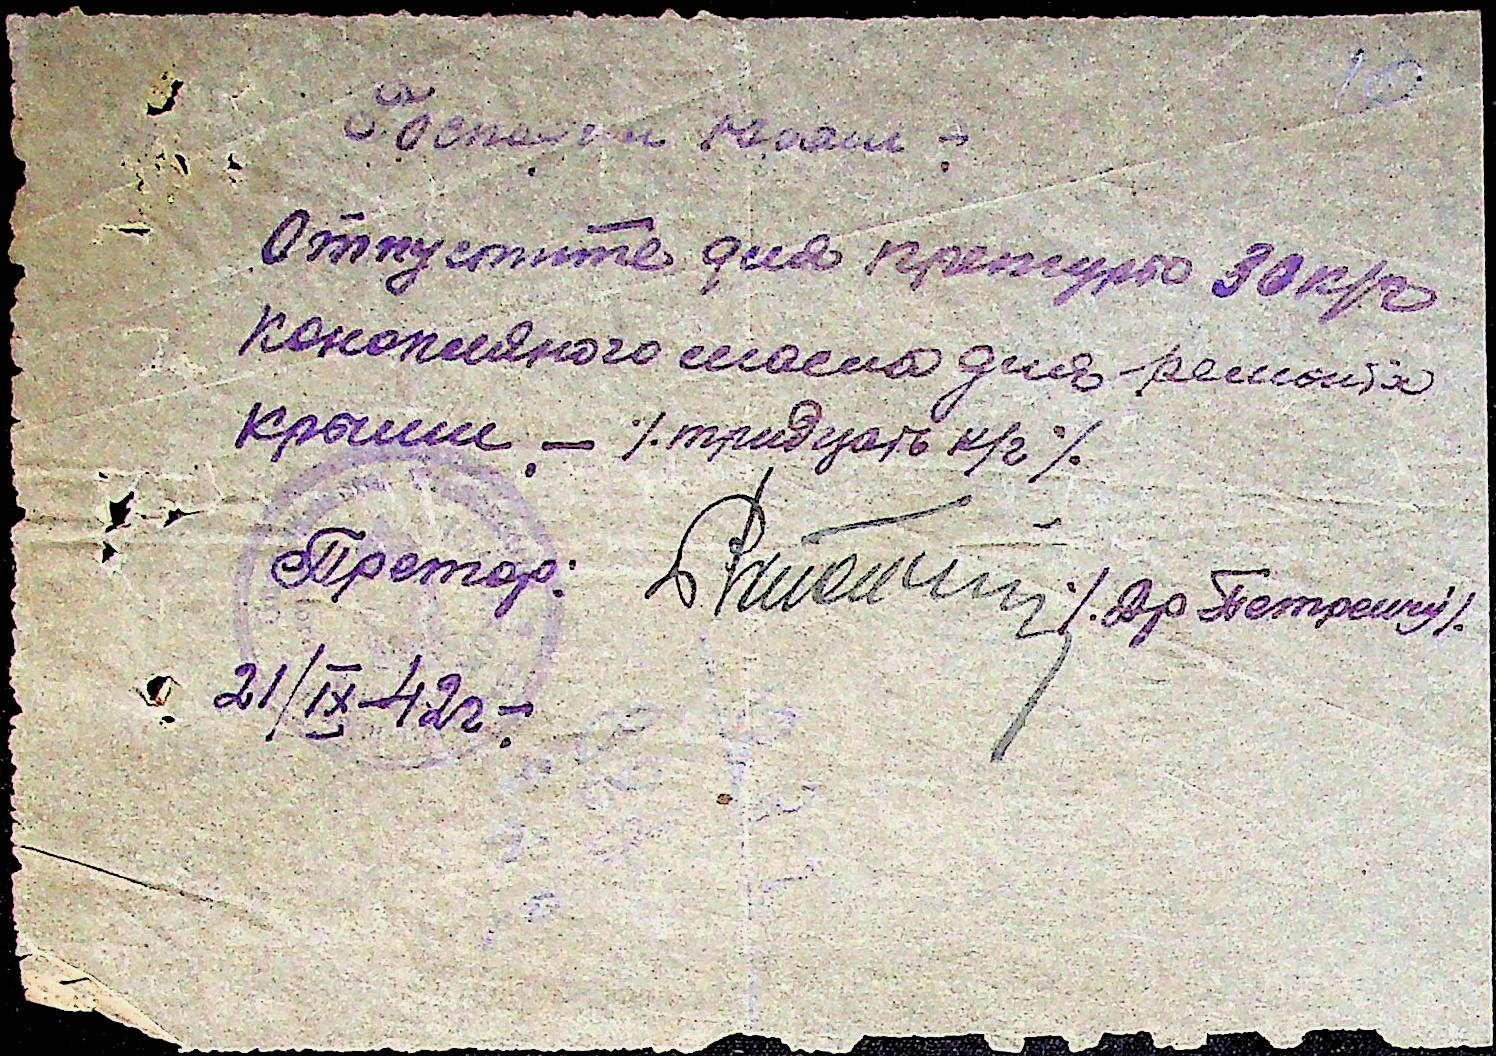 10
Отпустите для претуры 30 к/г
конопляного масла для ремонта
крыши. — %. тридцать к/г %.
Претор: %. Др Петреску %.
21/IX-42г-.